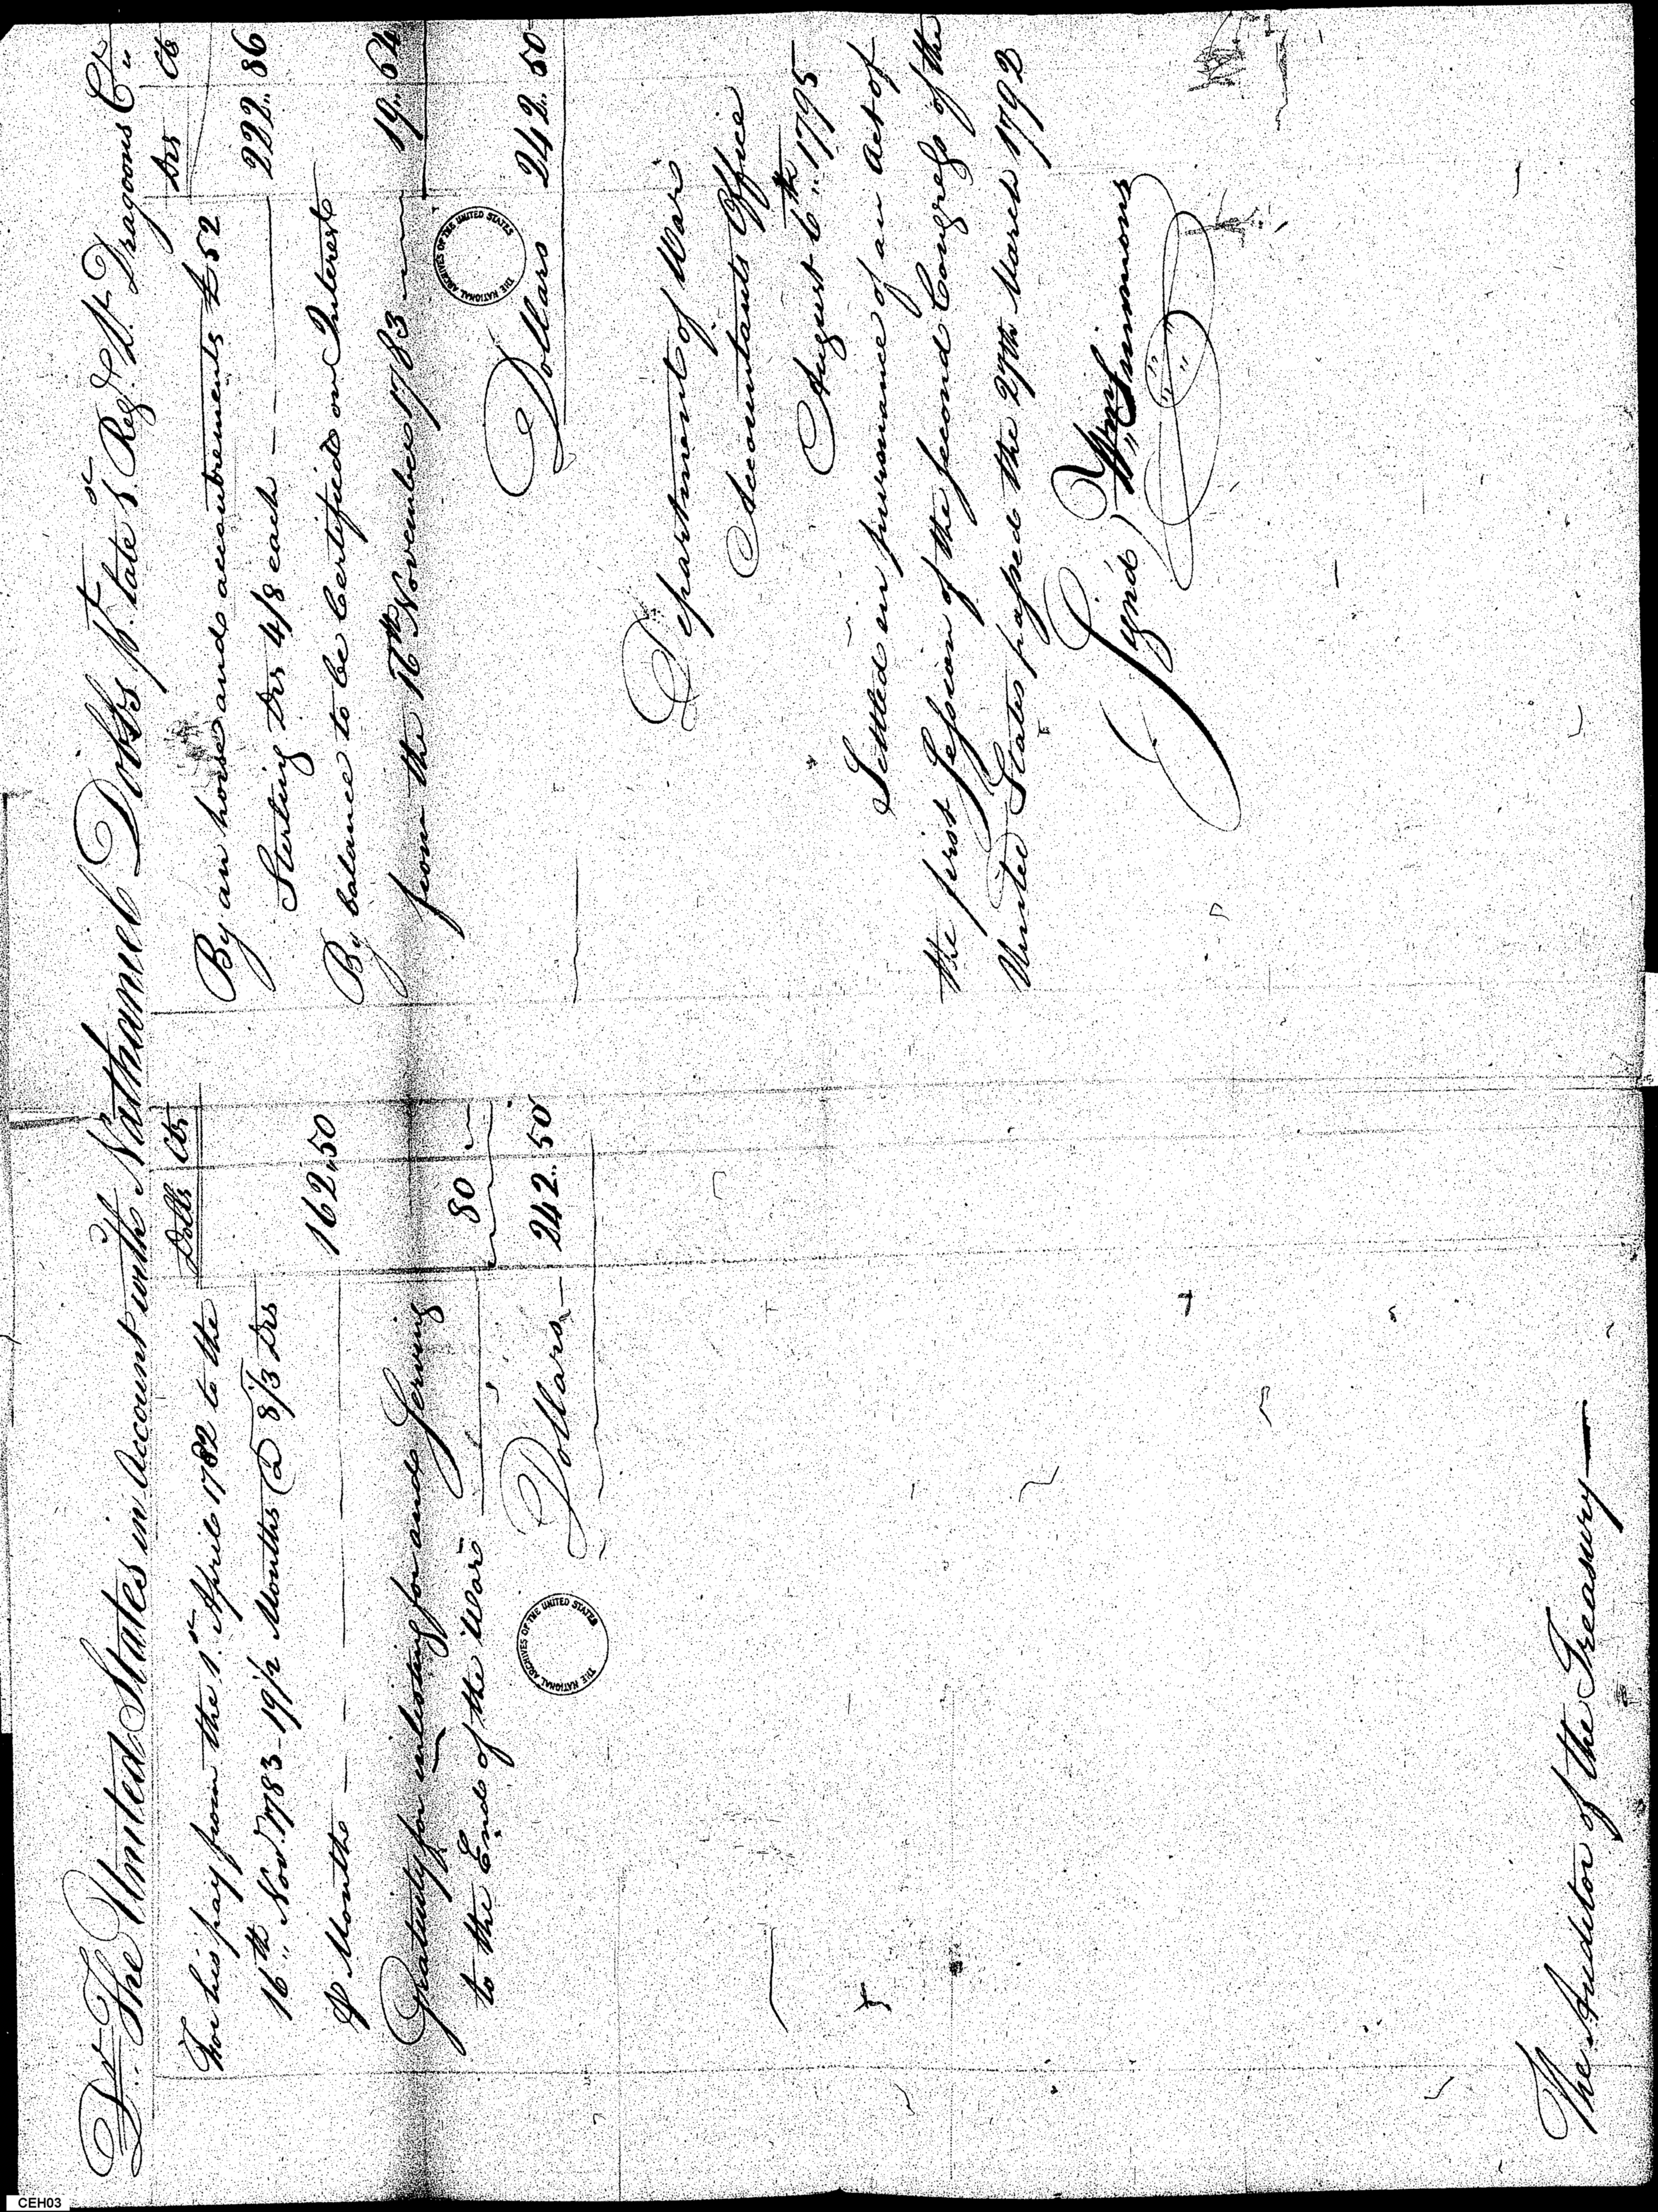 Dr. The United States in Account with Nathaniel Dobbs Pt. late 5 Regt. Lt. Dragoons Cr
Dolls Cts
For his pay from the 1st April 1782 to the
16th Novr. 1783 - 19 1/2 Months @ 8 1/3 Drs
⅌ Month 162,50
Gratuity for enlisting for and Serving
to the End of the War 80
Dollars 242..50
Drs Cts
By an horse and accoutrements £52
Sterling Drs 4/8 each 222..86
By balance to be Certified on Interest
from the 16th November 1783 19..64
Dollars 242..50
THE NATIONAL ARCHIVES OF THE UNITED STATES
THE NATIONAL ARCHIVES OF THE UNITED STATES
Department of War
Accountants Office
August 6th 1795
Settled in pursuance of an Act of
the first Session of the second Congress of the
United States passed the 27th March 1792
Sign'd Wm Simmons
The Auditor of the Treasury
CEH03